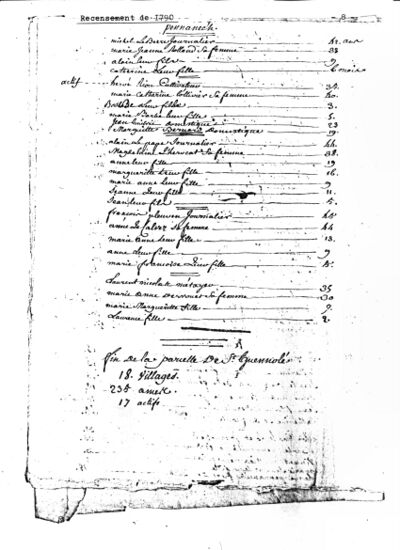 Recensement de 1790 - 8 -
pennaneick.
michel Le Berre Journallier 42. ans
marie Jeanne Rolland Sa femme 38
alain leur fils 9
catherine Leur fille 6 mois
actif hervé Cultivateur 34.
marie catherine Sa femme 40.
Leur fille 3.
marie Barbe leur fille 5.
Jean domestique 23
Marguritte Bernard Domestique 19
alain Le page Journallier 44.
Magdelaine Sa femme 38.
anne leur fille 19
marguerite Leur fille 16.
marie anne leur fille 9
Jeanne Leur fille 11.
Jean leur fils 5.
françois Journallier 45
anne Le Calvez Sa femme 44
marie anne leur fille 13.
anne leur fille 9
marie francoise Leur fille 4.
Laurent nicolas métayer 35
marie anne Sa femme 30
marie Margueritte fille 9.
Laurence fille 2.
fin de la parcelle De St Guennolé
18. Villages.
235 ames.
17 actifs